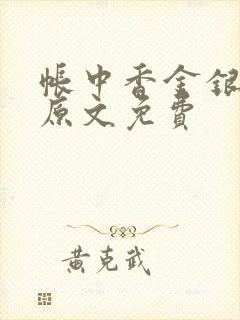 帳中香金銀
原文免費
黃克武